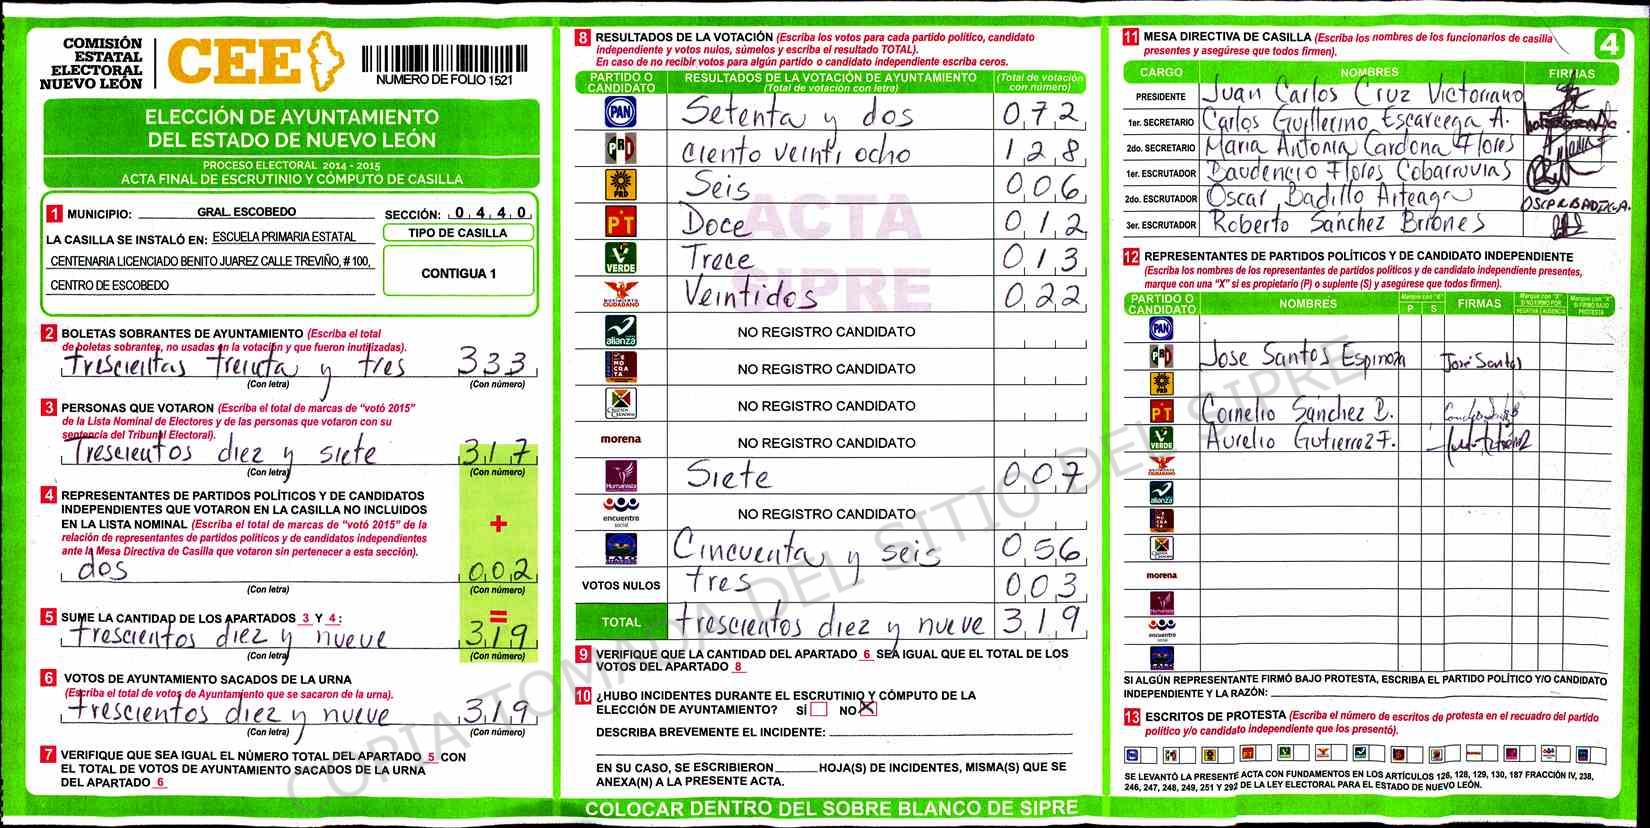 COMISIÓN
ESTATAL
ELECTORAL
NUEVO LEÓN
CEE
NUMERO DE FOLIO 1521
ELECCIÓN DE AYUNTAMIENTO
DEL ESTADO DE NUEVO LEÓN
PROCESO ELECTORAL 2014 - 2015
ACTA FINAL DE ESCRUTINIO Y CÓMPUTO DE CASILLA
1 MUNICIPIO: GRAL. ESCOBEDO SECCIÓN: 0 4 4 0
LA CASILLA SE INSTALÓ EN: ESCUELA PRIMARIA ESTATAL
CENTENARIA LICENCIADO BENITO JUAREZ CALLE TREVIÑO, # 100,
CENTRO DE ESCOBEDO
TIPO DE CASILLA
CONTIGUA 1
2 BOLETAS SOBRANTES DE AYUNTAMIENTO (Escriba el total
de boletas sobrantes, no usadas en la votación y que fueron inutilizadas).
trescientas treinta y tres 333
(Con letra) (Con número)
3 PERSONAS QUE VOTARON (Escriba el total de marcas de "votó 2015"
de la Lista Nominal de Electores y de las personas que votaron con su
sentencia del Tribunal Electoral).
Trescientos diez y siete 317
(Con letra) (Con número)
4 REPRESENTANTES DE PARTIDOS POLÍTICOS Y DE CANDIDATOS
INDEPENDIENTES QUE VOTARON EN LA CASILLA NO INCLUIDOS
EN LA LISTA NOMINAL (Escriba el total de marcas de "votó 2015" de la
relación de representantes de partidos políticos y de candidatos independientes
ante la Mesa Directiva de Casilla que votaron sin pertenecer a esta sección).
+
dos 002
(Con letra) (Con número)
=
5 SUME LA CANTIDAD DE LOS APARTADOS 3 Y 4:
trescientos diez y nueve 319
(Con letra) (Con número)
6 VOTOS DE AYUNTAMIENTO SACADOS DE LA URNA
(Escriba el total de votos de Ayuntamiento que se sacaron de la urna).
trescientos diez y nueve 319
(Con letra) (Con número)
7 VERIFIQUE QUE SEA IGUAL EL NÚMERO TOTAL DEL APARTADO 5 CON
EL TOTAL DE VOTOS DE AYUNTAMIENTO SACADOS DE LA URNA
DEL APARTADO 6
8 RESULTADOS DE LA VOTACIÓN (Escriba los votos para cada partido político, candidato
independiente y votos nulos, súmelos y escriba el resultado TOTAL).
En caso de no recibir votos para algún partido o candidato independiente escriba ceros.
PARTIDO O CANDIDATO RESULTADOS DE LA VOTACIÓN DE AYUNTAMIENTO (Total de votación con letra) (Total de votación con número)
PAN Setenta y dos 072
PRD ciento veinti ocho 128
PRD Seis 006
PT Doce 012
VERDE Trece 013
MOVIMIENTO CIUDADANO Veintidos 022
alianza NO REGISTRO CANDIDATO
DEMOCRATA NO REGISTRO CANDIDATO
NO REGISTRO CANDIDATO
morena NO REGISTRO CANDIDATO
Humanista Siete 007
encuentro social NO REGISTRO CANDIDATO
Cincuenta y seis 056
VOTOS NULOS tres 003
TOTAL trescientos diez y nueve 319
ACTA
SIPRE
9 VERIFIQUE QUE LA CANTIDAD DEL APARTADO 6 SEA IGUAL QUE EL TOTAL DE LOS
VOTOS DEL APARTADO 8
10 ¿HUBO INCIDENTES DURANTE EL ESCRUTINIO Y CÓMPUTO DE LA
ELECCIÓN DE AYUNTAMIENTO? SÍ NO X
DESCRIBA BREVEMENTE EL INCIDENTE:
EN SU CASO, SE ESCRIBIERON HOJA(S) DE INCIDENTES, MISMA(S) QUE SE
ANEXA(N) A LA PRESENTE ACTA.
COLOCAR DENTRO DEL SOBRE BLANCO DE SIPRE
11 MESA DIRECTIVA DE CASILLA (Escriba los nombres de los funcionarios de casilla
presentes y asegúrese que todos firmen).
4
CARGO NOMBRES FIRMAS
PRESIDENTE Juan Carlos Cruz Victoriano
1er. SECRETARIO Carlos Guillermo Escarcega A.
2do. SECRETARIO Maria Antonia Cardona Flores
1er. ESCRUTADOR Baudencio Flores Cobarruvias
2do. ESCRUTADOR Oscar Badillo Arteaga
3er. ESCRUTADOR Roberto Sánchez Briones
12 REPRESENTANTES DE PARTIDOS POLÍTICOS Y DE CANDIDATO INDEPENDIENTE
(Escriba los nombres de los representantes de partidos políticos y de candidato independiente presentes,
marque con una "X" si es propietario (P) o suplente (S) y asegúrese que todos firmen).
PARTIDO O CANDIDATO NOMBRES Marque con "X" P S FIRMAS Marque con "X" SI NO FIRMÓ POR NEGATIVA AUSENCIA Marque con "X" SI FIRMÓ BAJO PROTESTA
PAN
PRD Jose Santos Espinoza José Santos
PRD
PT Cornelio Sánchez B.
VERDE Aurelio Gutierrez F.
CIUDADANO
alianza
morena
Humanista
encuentro social
SI ALGÚN REPRESENTANTE FIRMÓ BAJO PROTESTA, ESCRIBA EL PARTIDO POLÍTICO Y/O CANDIDATO
INDEPENDIENTE Y LA RAZÓN:
13 ESCRITOS DE PROTESTA (Escriba el número de escritos de protesta en el recuadro del partido
político y/o candidato independiente que los presentó).
SE LEVANTÓ LA PRESENTE ACTA CON FUNDAMENTOS EN LOS ARTÍCULOS 126, 128, 129, 130, 187 FRACCIÓN IV, 238,
246, 247, 248, 249, 251 Y 292 DE LA LEY ELECTORAL PARA EL ESTADO DE NUEVO LEÓN.
COPIA TOMADA DEL SITIO DEL SIPRE